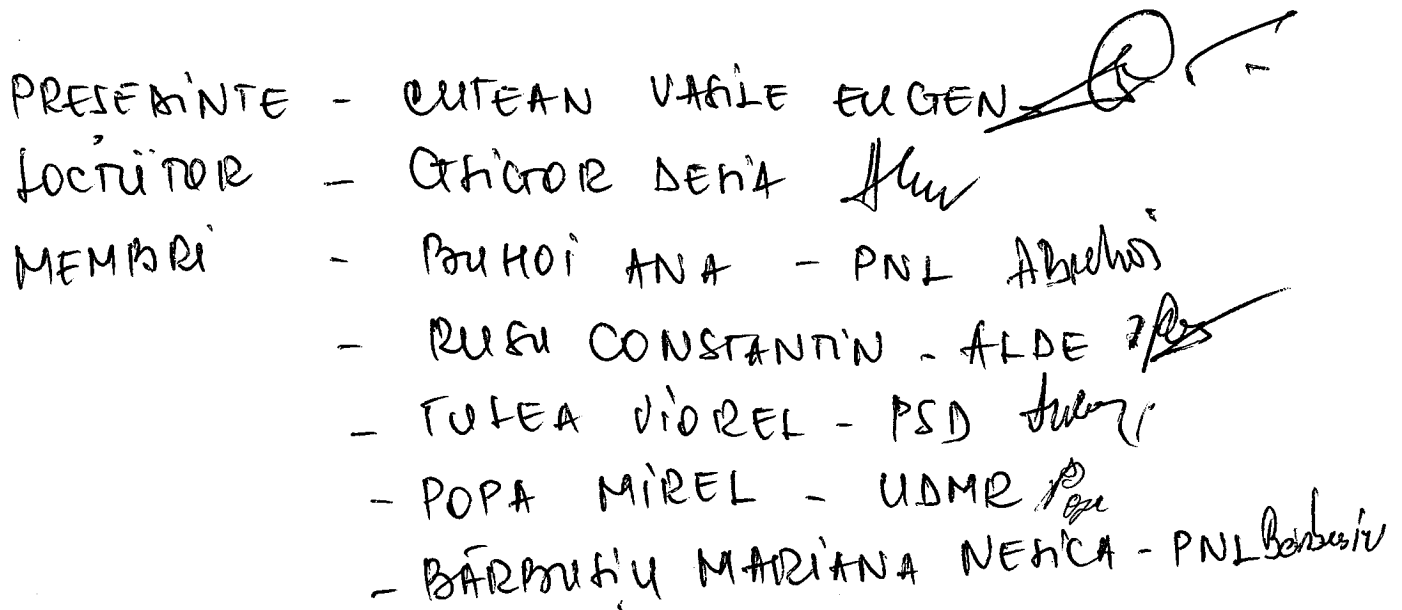 PREȘEDINTE - CUTEAN VASILE EUGEN
LOCȚIITOR - GLIGOR DELIA
MEMBRI - BUHOI ANA - PNL ABuhoi
- RUSU CONSTANTIN - ALDE
- TULEA VIOREL - PSD
- POPA MIREL - UDMR Popa
- BĂRBUȚIU MARIANA NELICA - PNL